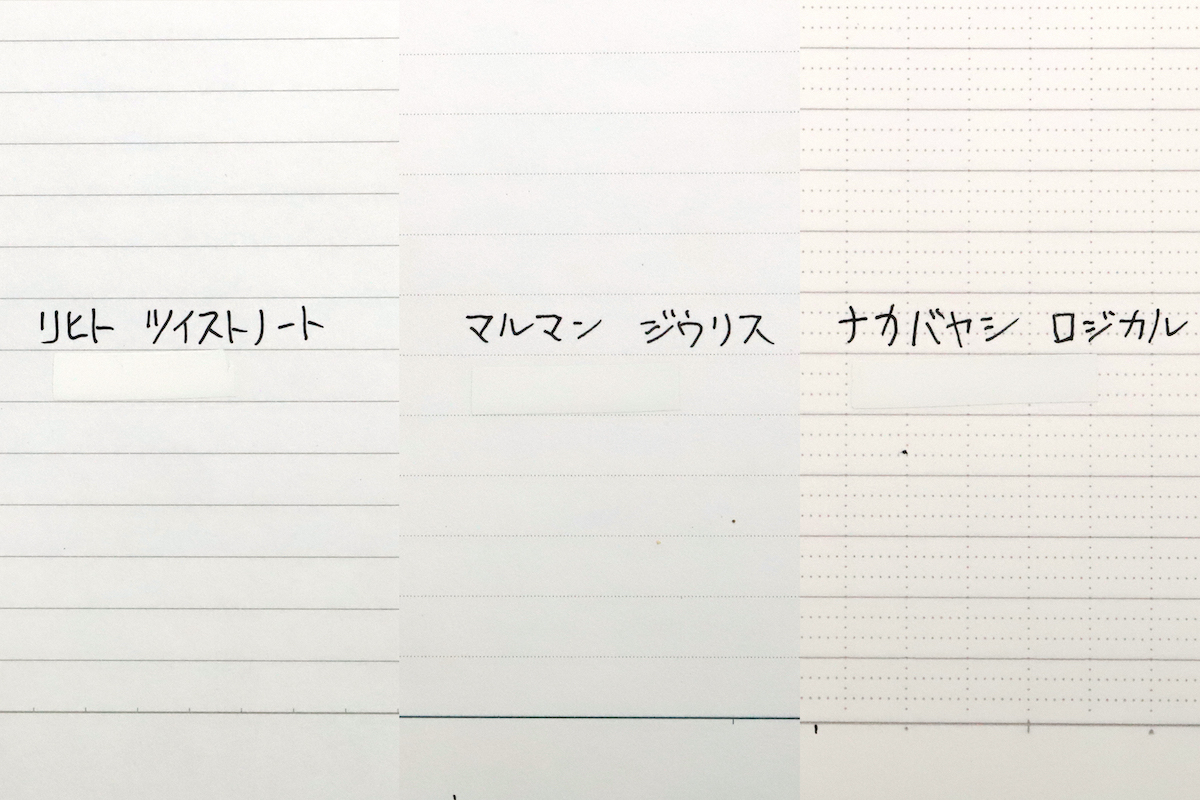 リヒト ツイストノート
マルマン ジウリス
ナカバヤシ ロジカル